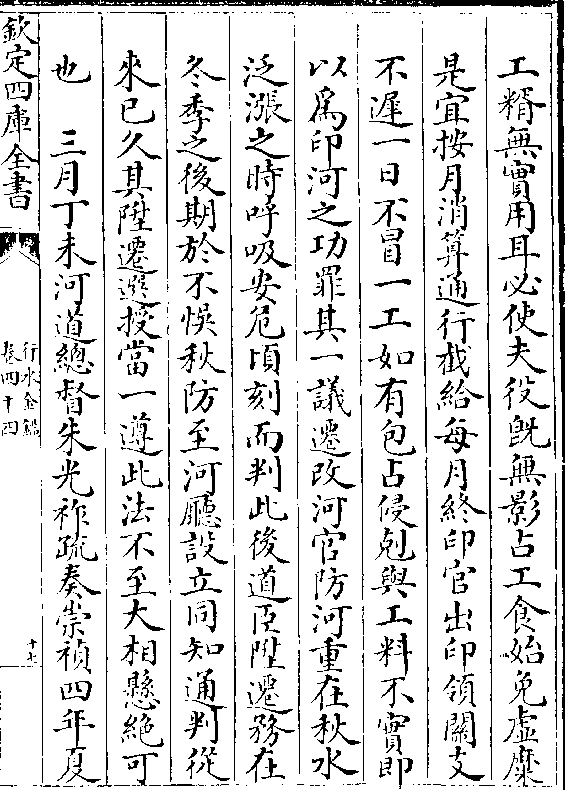 工糈無實用耳必使夫役旣無影占工食始免虛糜
是宜按月消算通行截給每月終印官出印領關支
不遲一日不冒一工如有包占侵剋與工料不實即
以爲印河之功罪其一議遷改河官防河重在秋水
泛漲之時呼吸安危頃刻而判此後道臣陞遷務在
冬季之後期於不悞秋防至河廳設立同知通判從
來已久其陞遷選授當一遵此法不至大相懸絶可
也　三月丁未河道總督朱光祚疏奏崇禎四年夏
欽定四庫全書
行水金鑑
卷四十四
十七